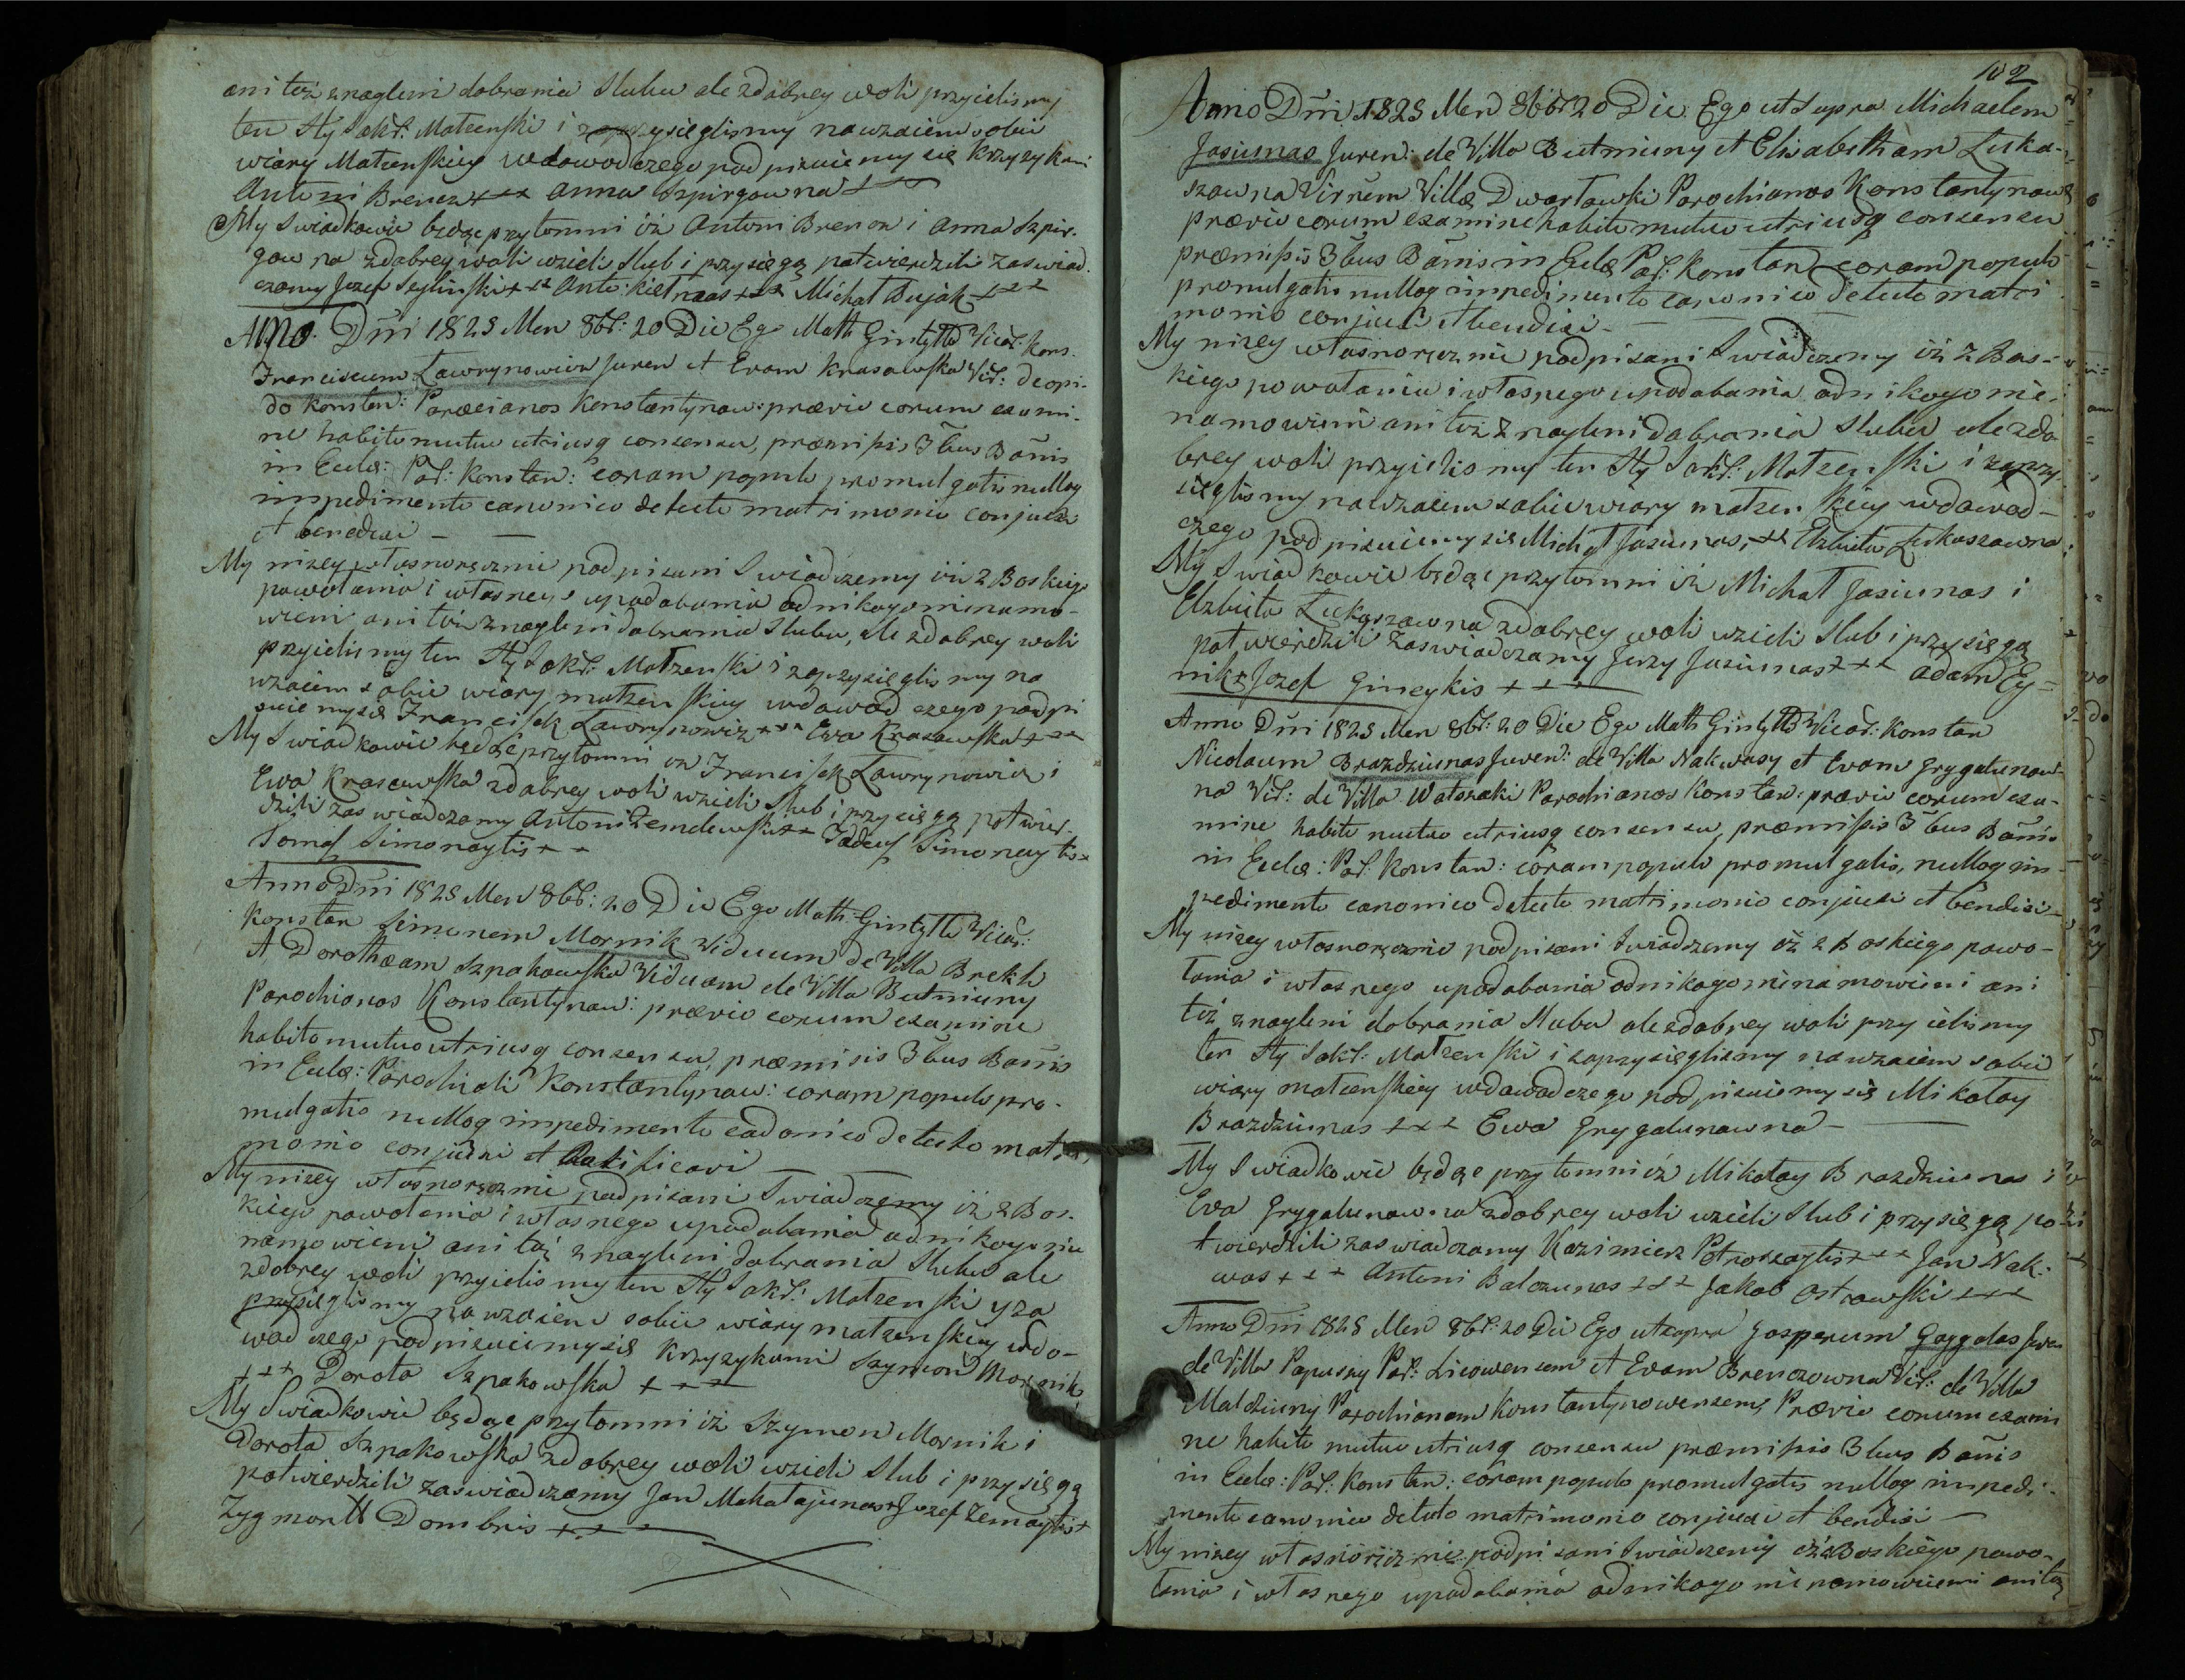 ani też znagleni dobrania Slubu ale zdobrey woli przyielismy
ten Sty Sakr: Małzenski i zaprzysieglismy nawzaiem sobie
wiary Małzenskiey wdowod czego podpisuiemy się Krzyzykami
Antoni Brencz+++ Anna Szpirgowna+++
My Swiadkowie będąc przytomni iż Antoni Brencz i Anna Szpir-
gow na zdobrey woli wzieli Slub i przysięgą potwierdzili zaswiad-
czamy Jozef Seylinski+++ Anto: Kietnaas+++ Michał Bujak+++
Anno Dni 1823 Men 8br: 20 Die Ego Math Gintyłło Vicar: Kons.
Franciscum Ławrynowicz Juven et Evam Krasowska Vir: de opi-
do Konstan: Paroecianos Konstantynow: prævio eorum exami-
ne habito mutuo utriusq consensu, præmissis 3bus Banis
in Eccla: Par: Konstan: coram populo promulgatis nulloq
impedimento canonico detecto matrimonio conjunxi
et benedixi
My nizey własnorącznie podpisani Swiadczemy iż z Boskiego
powołania i własnego upodobania od nikogo nienamo-
wieni ani też znagleni dobrania Slubu, ale zdobrey woli
przyielismy ten Sty Sakr: Małzenski i zaprzysieglismy na
wzaiem sobie wiary małzenskiey wdowod czego podpi
suiemy się Franciszek Ławrynowicz+++ Ewa Krasowska+++
My Swiadkowie będąc przytomni iż Franciszek Ławrynowicz i
Ewa Krasowska zdobrey woli wzieli Slub i przysięgą potwier-
dzili zaswiadczamy Antoni Zemdewski++ Tadeusz Simonaytis+
Tomas Simonaytis++
Anno Dni 1823 Men 8br: 20 Die Ego Math: Gintyłło Vicar:
Konstan Simonem Mornik Viduum de Villa Brekh
A Dorotheam Szpakowska Viduam de Villa Butniuny
Parochianos Konstantynow: prævio eorum examine
habito mutuo utriusq consensu, præmissis 3bus Banis
in Eccla: Parochiali Konstantynow: coram populo pro-
mulgatis nulloq impedimento canonico detecto matri
monio conjunxi et Ratificavi
My nizey własnorącznie podpisani Swiadczemy iż z Bos-
kiego powołania i własnego upodobania od nikogo nie
namowieni ani też znagleni dobrania Slubu ale
zdobrey woli przyielismy ten Sty Sakr: Małzenski yza
przysieglismy nawzaiem sobie wiary małzenskiey wdo-
wod czego podpisuiemy się Krzyzykami Szymon Mornik
+++ Dorota Szpakowska +++
My Swiadkowie będąc przytomni iż Szymon Mornik i
Dorota Szpakowska zdobrey woli wzieli Slub i przysięgą
potwierdzili zaswiadczamy Jan Mikałajunas+ Jozef Zemaytis+
Zygmontt Dombris +++
102
Anno Dni 1823 Men 8br 20 Die Ego ut Supra Michaelem
Jasiunas Juven: de Villa Butniuny et Elisabetham Łuka-
szowna Virnem Villæ Dwarławki Parochianos Konstantynow:
prævio eorum examine habito mutuo utriusq consensu
præmissis 3bus Banis in Eccla Par: Konstan coram populo
promulgatis nulloq impedimento canonico detecto matri
monio conjunxi et bendixi
My nizey własnorącznie podpisani Swiadczemy iż z Bos-
kiego powołania i własnego upodobania od nikogo nie-
namowieni ani też znagleni dobrania Slubu ale zdo
brey woli przyielismy ten Sty Sakr: Małzenski i zaprzy
sięglismy nawzaiem sobie wiary małzenskiey wdowod
czego podpisuiemy się Michał Jasiunas, ++ Elzbieta Łukaszowna
My Swiadkowie będąc przytomni iż Michał Jasiunas i
Elzbieta Łukaszowna zdobrey woli wzieli Slub i przysięgą
potwierdzili zaswiadczamy Jerzy Jasiunas+++ Adam Ey=
nik+ Jozef Gineykis +++
Anno Dni 1823 Men 8br: 20 Die Ego Math Gintyłło Vicar: Konstan
Nicolaum Brazdziunas Juven: de Villa Nakwasy et Evam Grygalunow-
na Vir: de Villa Watszaki Parochianos Konstan: prævio eorum exa-
mine habito mutuo utriusq consensu, præmissis 3bus Banis
in Eccla: Par: Konstan: coram populo promulgatis, nulloq im-
pedimento canonico detecto matrimonio conjunxi et bendixi
My nizey własnorącznie podpisani Swiadczemy iż z Boskiego powo-
łania i własnego upodobania od nikogo nienamowieni ani
też znagleni dobrania Slubu ale zdobrey woli przyielismy
ten Sty Sakr: Małzenski i zaprzysieglismy nawzaiem sobie
wiary małzenskiey wdowod czego podpisuiemy się Mikołay
Brazdziunas +++ Ewa Grygalunowna
My Swiadkowie będąc przytomni iż Mikołay Brazdziunas i
Ewa Grygalunowna zdobrey woli wzieli Slub i przysięgą po
twierdzili zaswiadczamy Kazimierz Potroszaytis+++ Jan Nak:
was+++ Antoni Balczunas +++ Jakob Ostrowski +++
Anno Dni 1823 Men 8br: 20 Die Ego ut supra Josperum Gaygalas Juven
de Villa Papuszy Par: Licowensem et Evam Brenczowna Vir: de Villa
Maldziuny Parochianam Konstantynowensem, Prævio eorum exami
ne habito mutuo utriusq consensu præmissis 3bus Banis
in Eccla: Par: Konstan: coram populo promulgatis nulloq impedi-
mento canonico detecto matrimonio conjunxi et bendixi
My nizey własnorącznie podpisani Swiadczemy iż z Boskiego powo-
łania i własnego upodobania od nikogo nienamowieni ani też